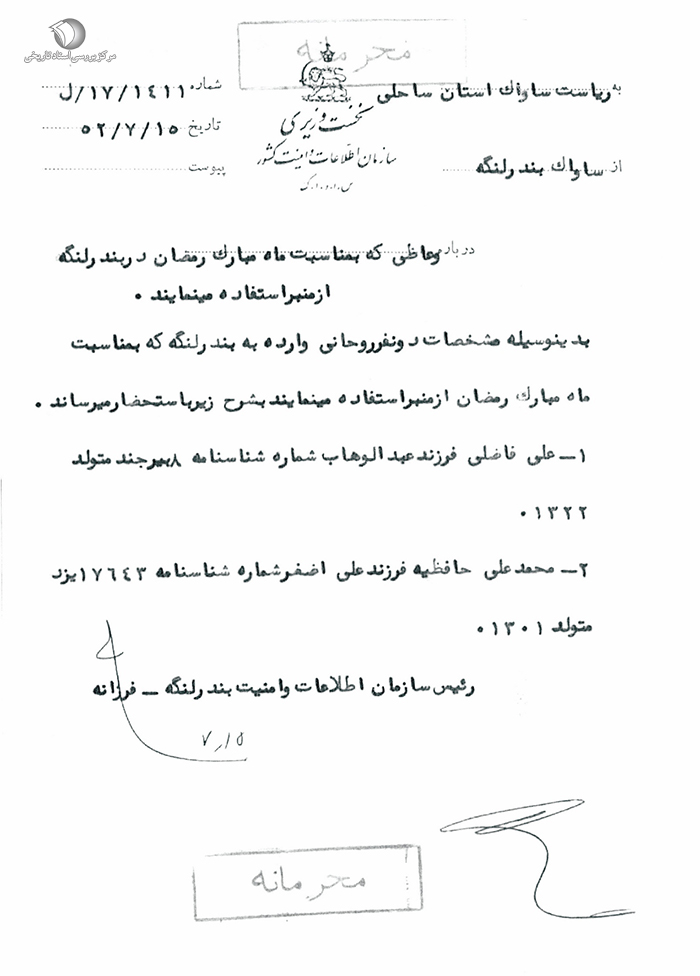 مرکز بررسی اسناد تاریخی
محرمانه
به ریاست ساواک استان ساحلی
شماره ۱۷/۱۴۱۱/ل
نخست وزیری
تاریخ ۵۲/۷/۱۵
سازمان اطلاعات و امنیت کشور
س.ا.و.ا.ک
از ساواک بندرلنگه
پیوست
درباره وعاظی که بمناسبت ماه مبارک رمضان در بندرلنگه
ازمنبراستفاده مینمایند .
بدینوسیله مشخصات دونفرروحانی وارده به بندرلنگه که بمناسبت
ماه مبارک رمضان ازمنبراستفاده مینمایند بشرح زیرباستحضارمیرساند .
۱ـ علی فاضلی فرزند عبدالوهاب شماره شناسنامه ۸بیرجند متولد
۱۳۲۲.
۲ـ محمدعلی حافظیه فرزندعلی اضغرشماره شناسنامه ۱۷۶۴۳یزد
متولد ۱۳۰۱.
رئیس سازمان اطلاعات وامنیت بندرلنگه ـ فرزانه
۷/۱۵
محرمانه